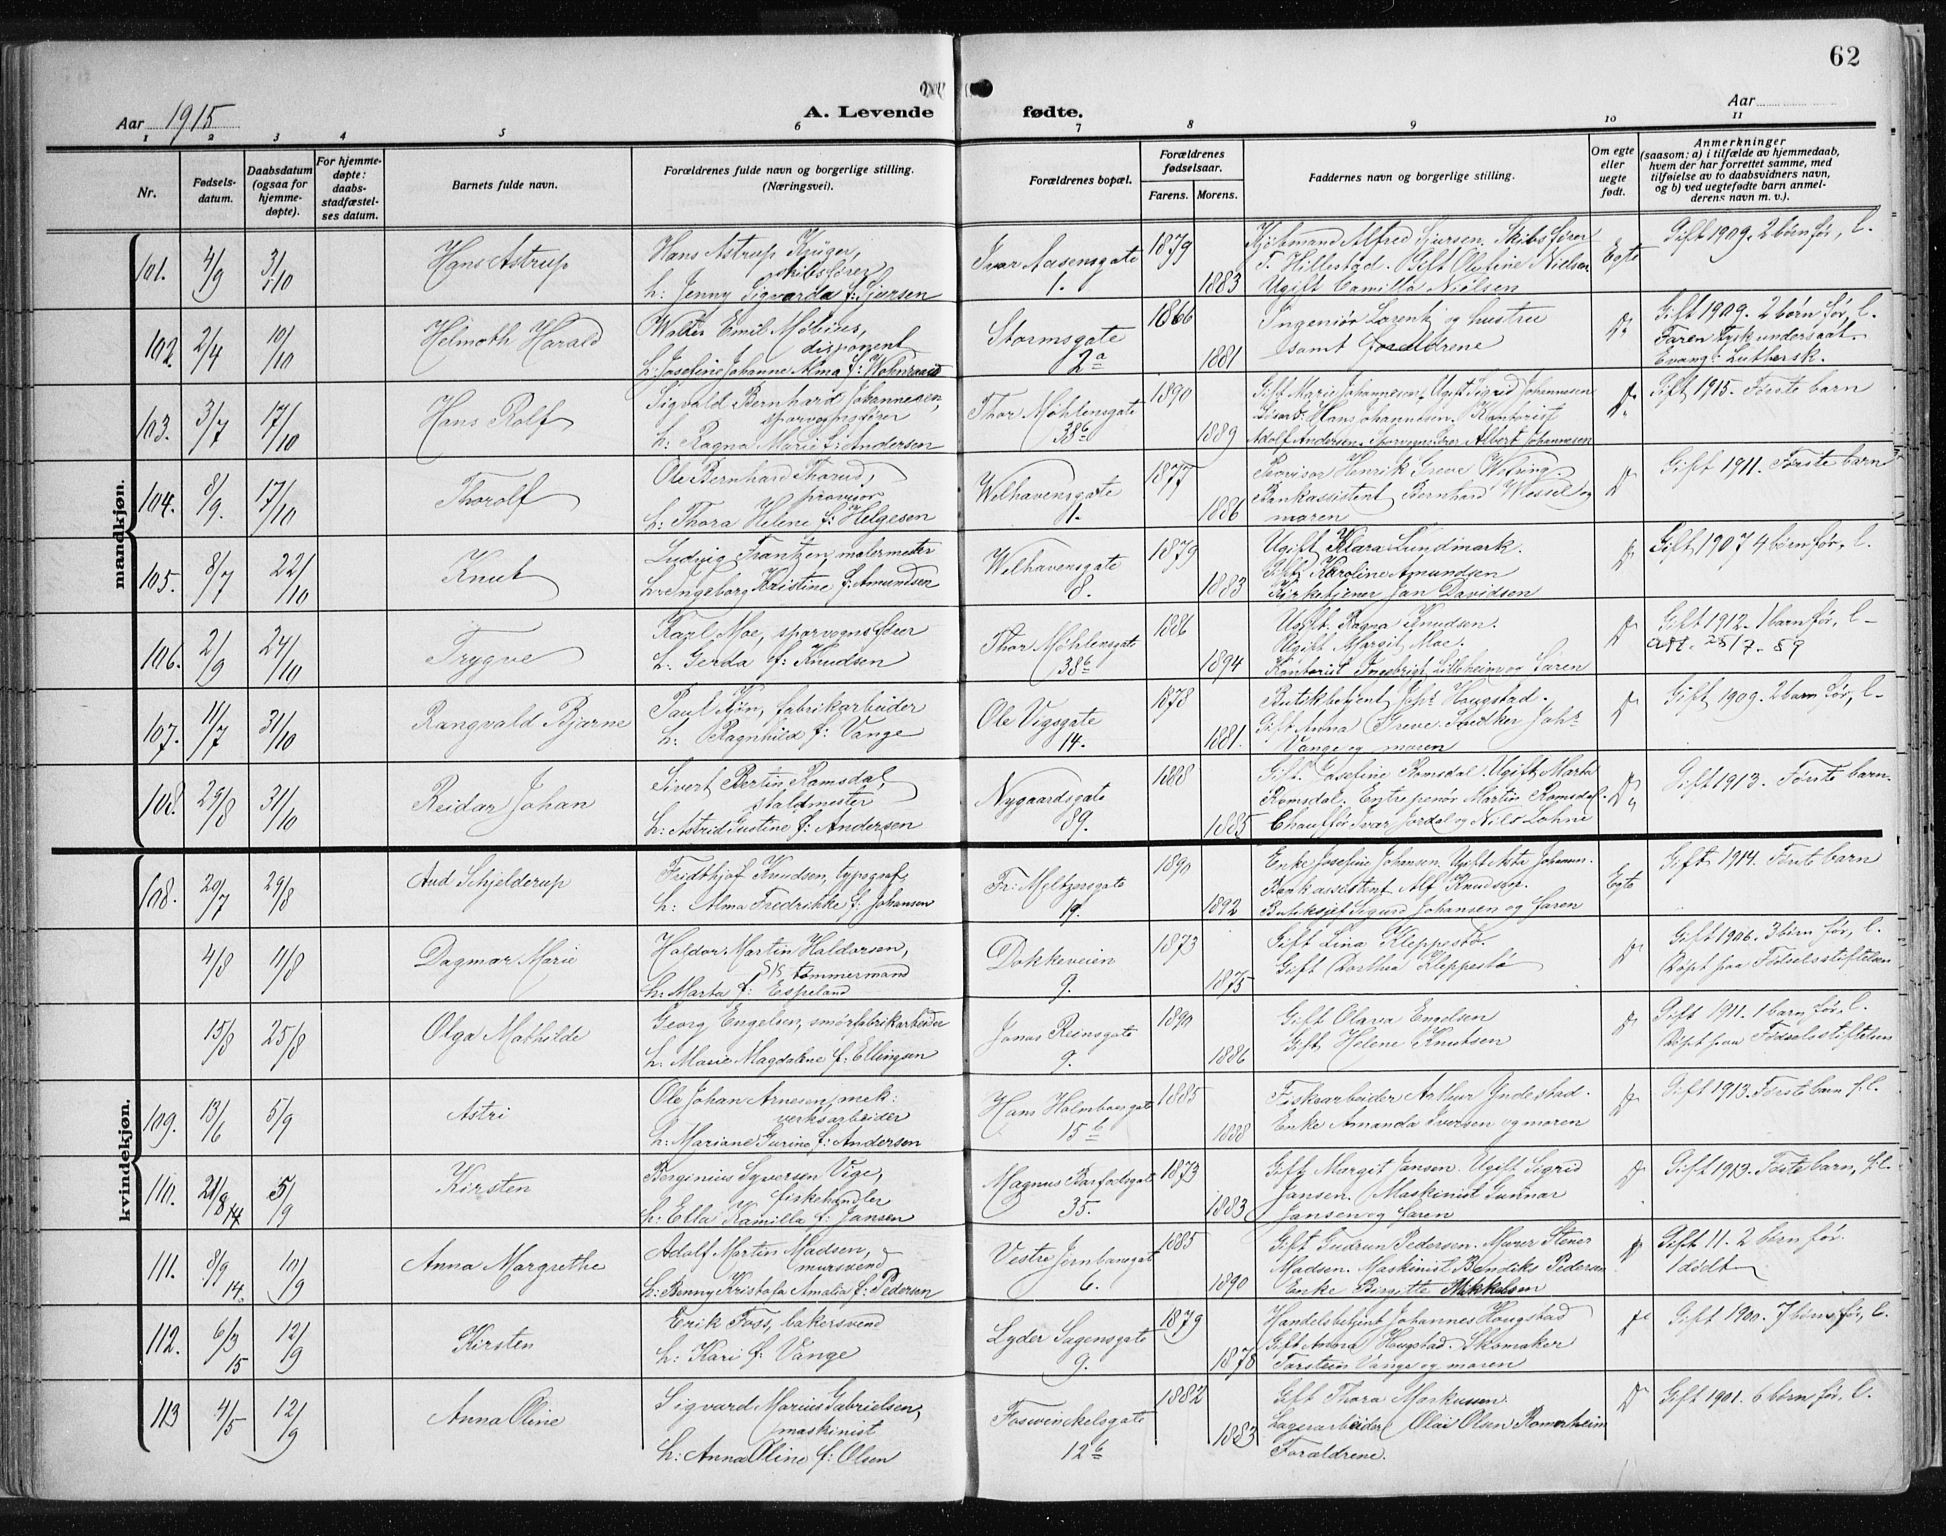 62
Aar 1915
A. Levende fødte.
Aar
1 2 3 4 5 6 7 8 9 10 11
Nr.
Fødsels-
datum.
Daabsdatum
(ogsaa for
hjemme-
døpte).
For hjemme-
døpte:
daabs-
stadfæstel-
ses datum.
Barnets fulde navn.
Forældrenes fulde navn og borgerlige stilling.
(Næringsvei).
Forældrenes bopæl.
Forældrenes
fødselsaar.
Farens. Morens.
Faddernes navn og borgerlige stilling.
Om egte
eller
uegte
født.
Anmerkninger
(saasom: a) i tilfælde av hjemmedaab,
hvem der har forrettet samme, med
tilføielse av to daabsvidners navn,
og b) ved uegtefødte barn anmel-
derens navn m. v.).
mandkjøn.
101. 4/9 31/10 Hans Astrup
Hans Astrup Krüger,
skibsfører
h: Jenny Sigvarda f: Sjursen
Ivar Aasensgate
1.
1879
1883
Kjøbmand Alfred Sjursen. Skibsfører
T. Hillestad. Gift Olufine Nielsen
Ugift Camilla Nielsen
Egte
Gift 1909. 2 børn før, l.
102. 2/4 10/10 Helmoth Harald
Walter Emil
disponent
h: Josefine Johanne Alma f:
Stormsgate
2a
1866
1881
Ingeniør Lorentz og hustru
samt forældrene
Do
Gift 1909. 2 børn før, l.
Faren tysk undersaat.
Evang: Luthersk.
103. 3/7 17/10 Hans Rolf
Sigvald Bernhard Johannesen,
sporvognsfører
h: Ragna Marie f: Andersen
Thor Møhlensgate
38b
1890
1889
Gift Marie Johannesen, Ugift Sigrid Johannesen
Hans Johannesen. Kontorist
Adolf Andersen. Sporvognsfører Albert Johannesen
Do
Gift 1915. Første barn
104. 8/9. 17/10 Thorolf
Ole Bernhard Thorud,
provisor
h: Thora Helene f: Helgesen
Welhavensgate
1.
1877
1886
Provisor Henrik Greve
Bankassistent Bernhard Wessel og
moren
Do
Gift 1911. Første barn
105. 8/7 22/10 Knut
Ludvig Frantzen, malermester
h: Ingeborg Kristine f: Amundsen
Welhavensgate
8.
1879
1883
Ugift Klara Lundmark.
Gift Karoline Amundsen
Kirketjener Jan Davidsen
Do
Gift 1907 4 børn før, l.
106. 2/9 24/10 Trygve
Karl Moe, sporvognsfører
h. Gerda f: Knudsen
Thor Møhlensgate
38b
1886
1894
Ugift. Ragna Knudsen.
Ugift Margit Moe.
Kontorist Ingebrigt Lilleheim og faren
Do
Gift 1912. 1 barn før, l
att. 7 - 59
107. 11/7 31/10 Rangvald Bjarne
Paul Kjøn, fabrikarbeider
h. Ragnhild f: Vange
Ole Vigsgate
14.
1878
1881.
Butikbetjent Johs Haugstad.
Gift Anna Greve. Snedker Johs
Vange og moren
Do
Gift 1909. 2 barn før, l.
108. 29/8 31/10 Reidar Johan
Sivert Bertin Ramsdal,
staldmester
h: Astrid Gustine f: Andersen
Nygaardsgate
89.
1888
1885
Gift Josefine Ramsdal. Ugift Marta
Ramsdal. Entrepenør Martin Ramsdal.
Chauffør Ivar Jordal og Nils Lohne
Do
Gift 1913. Første barn.
kvindekjøn.
108. 20/7 29/8 Aud Schjelderup
Fridthjof Knudsen, typograf
h: Alma Fredrikke f: Johansen
Fr: Meltzersgate
19.
1890
1892
Enke Josefine Johansen. Ugift Asta Johann.
Bankassistent Alf Knudsen.
Butikchef Sigurd Johansen og faren
Egte
Gift 1914. Første barn
4/8 11/8 Dagmar Marie
Haldor Martin Haldorsen,
S/S tømmermand
h: Marta f: Espeland
Dokkeveien
9.
1873
1875
Gift Lina Kleppestø.
Gift Dorthea Kleppestø
Do
Gift 1906. 3 børn før, l.
Døpt paa Fødselsstiftelsen
15/8 25/8 Olga Mathilde
Georg Engelsen, smørfabrikarbeider
h: Marie Magdalene f: Ellingsen
Jonas Reinsgate
9.
1890
1886
Gift Olava Engelsen
Gift Helene Knutsen
Do
Gift 1911. 1 barn før, l.
Døpt paa Fødselsstiftelsen
109. 13/6 5/9 Astri
Ole Johan Arnesen, mek:
verksarbeider
h: Mariane Gurine f: Andersen
Hans Holmboesgate
15b
1885
1888
Fiskearbeider Arthur Yndestad.
Enke Amanda Iversen og moren
Do
Gift 1913. Første barn f.l.
110. 21/8 14 5/9 Kirsten
Berginius Syversen Vige,
fiskehandler
h: Ella Kamilla f: Jansen
Magnus Barfodsgate
35.
1873
1883
Gift Margit Jansen. Ugift Sigrid
Jansen. Maskinist Gunnar
Jansen og faren
Do
Gift 1913. Første barn, f.l.
111. 8/9 14. 10/9 Anna Margrethe
Adolf Martin Madsen,
mursvend
h: Benny Kristofa Amalia f: Pedersen
Vestre Jernbanegate
6.
1885
1890
Gift Gudrun Pedersen. Murer Stener
Madsen. Maskinist Bendiks Pedersen
Enke Birgitte Mikkelsen
Do
Gift 11. 2 børn før.
1 dødt
112. 6/3 15 12/9 Kirsten
Erik Foss, bakersvend
h: Kari f: Vange
Lyder Sagensgate
9.
1879
1878
Handelsbetjent Johannes Haugstad
Gift Anna Haugstad. Skomaker
Torstein Vange og moren
Do
Gift 1900. 7 børn før, l.
113 4/5 12/9 Anna Oline
Sigvard Marius Gabrielsen,
maskinist
h: Anna Oline f: Olsen
Foswinckelsgate
12b
1882
1883
Gift Thora Markussen.
Lagerarbeider Olai Olsen Romerheim
Forældrene.
Do
Gift 1901. 6 børn før, l.